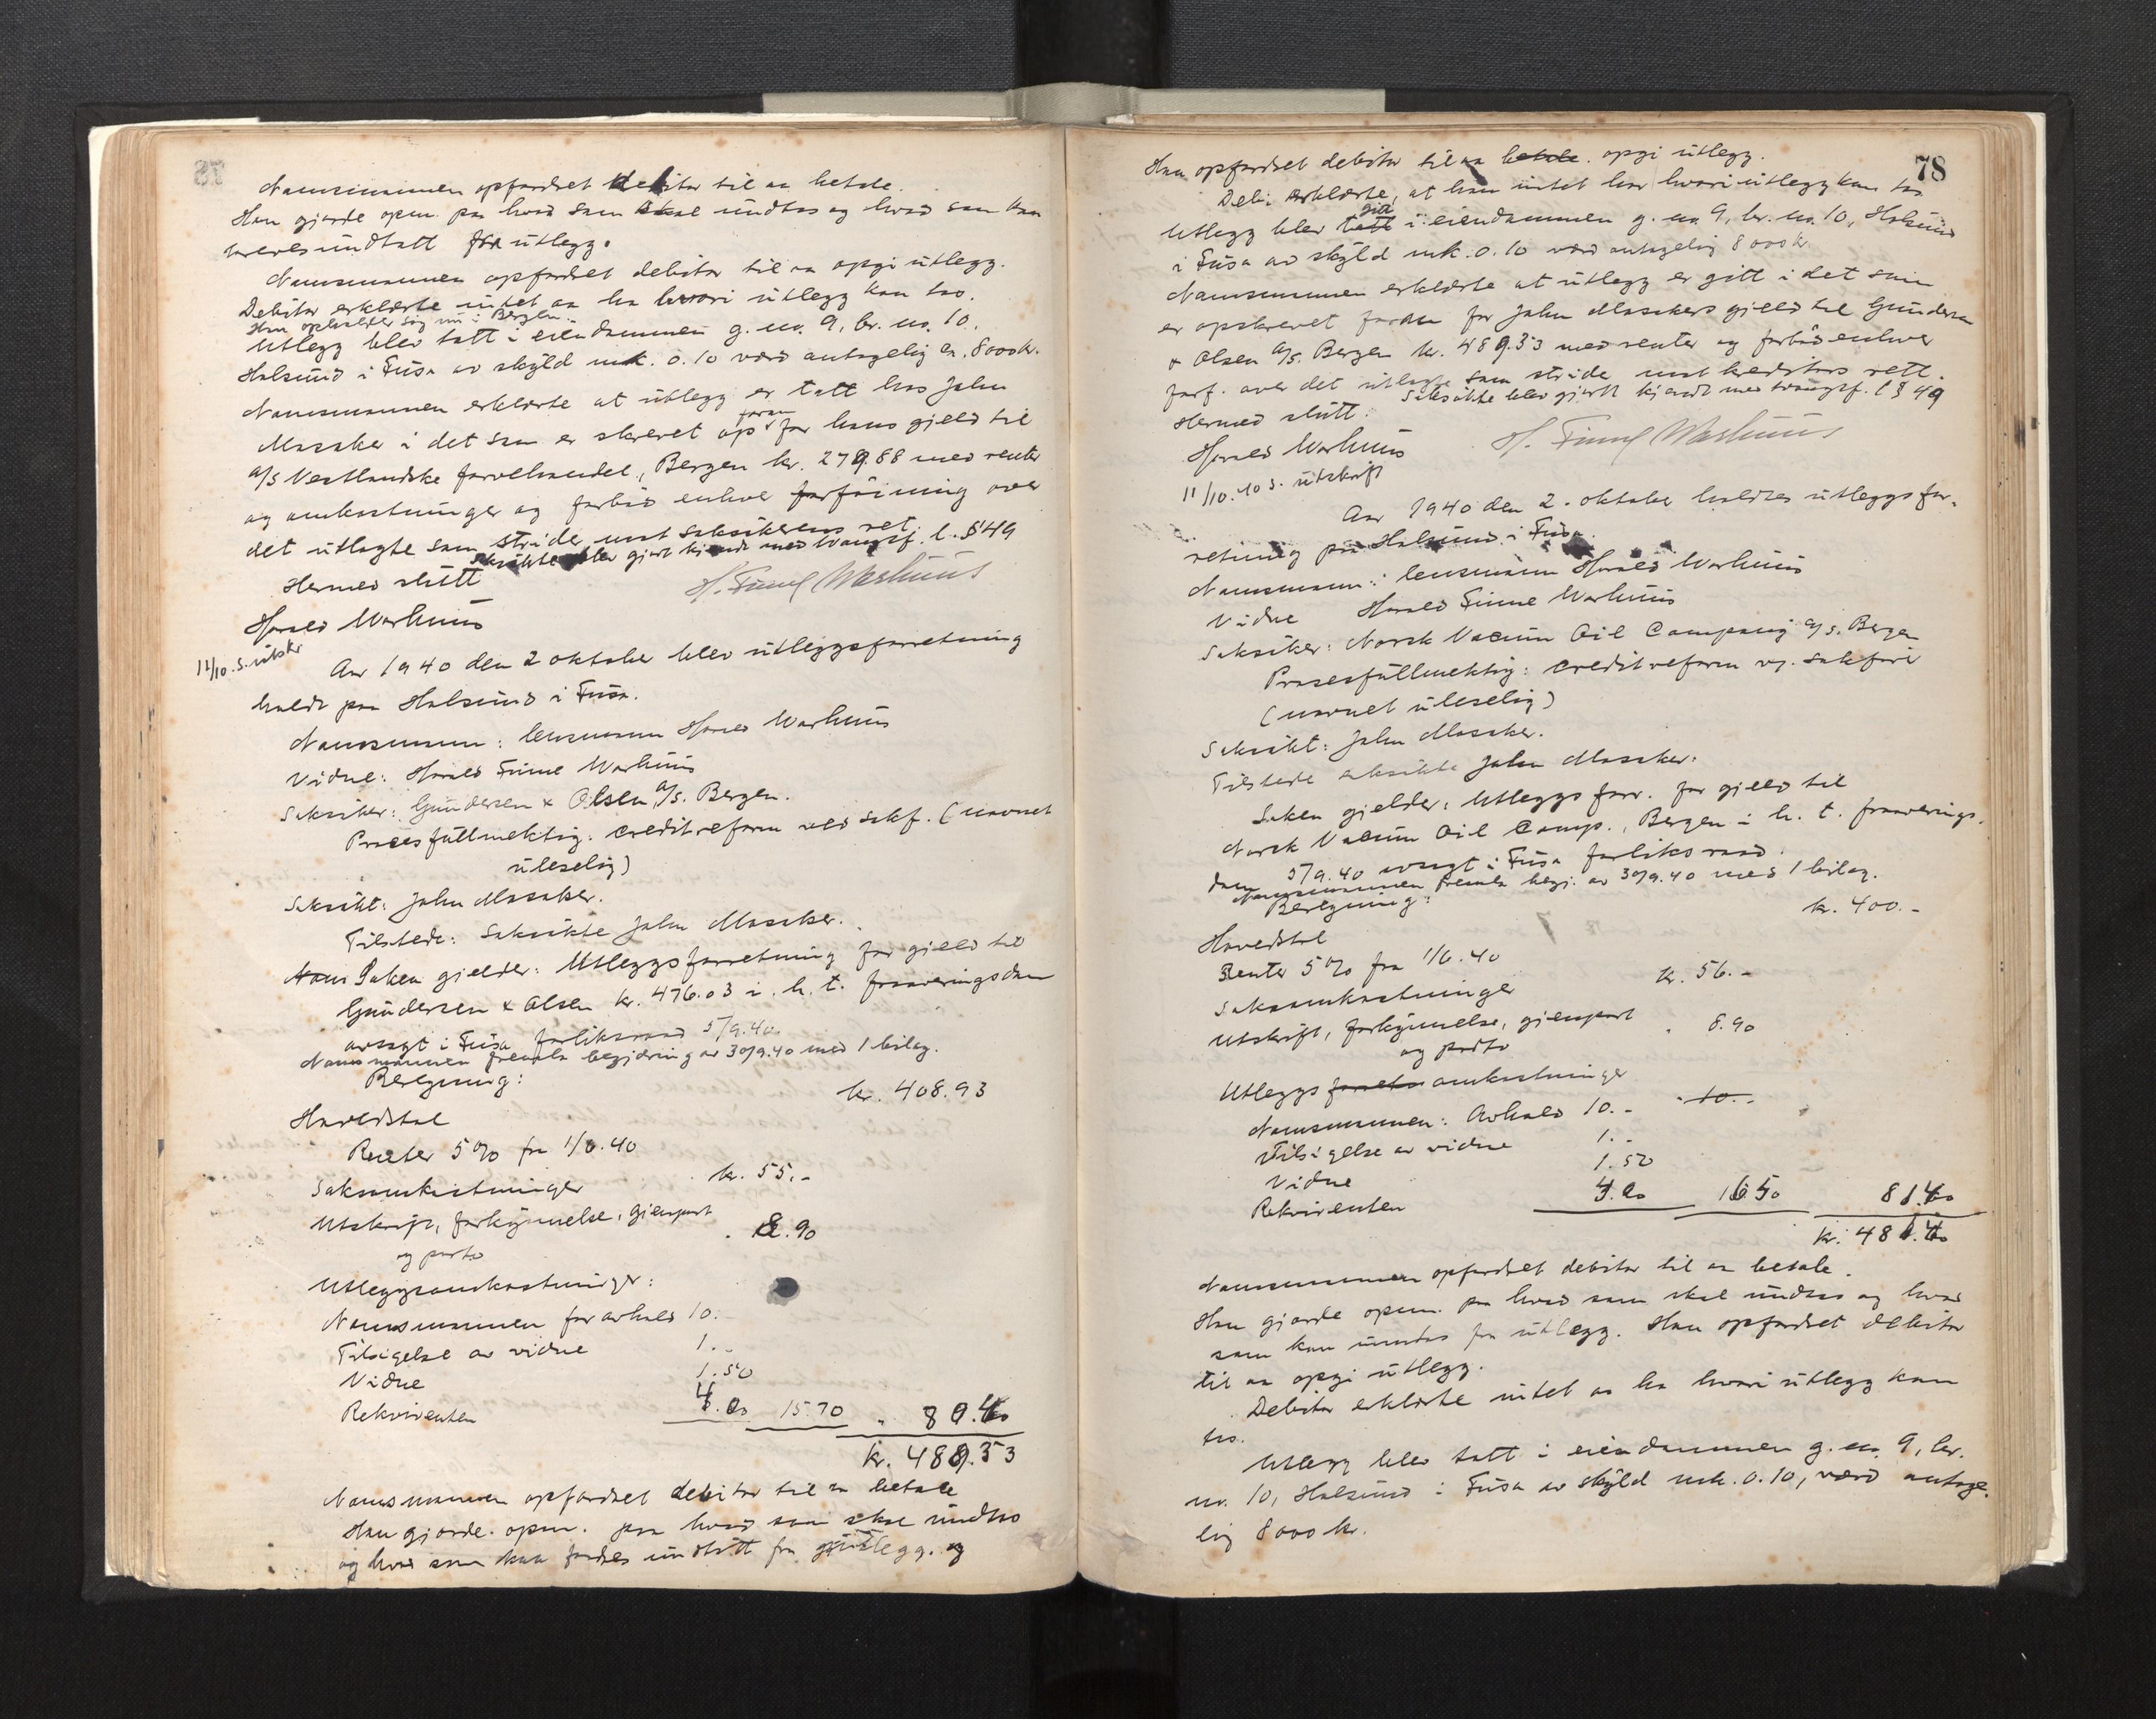 Namsmannen opfordret debitor til aa betale.
Han gjorde opm. paa hvad som skal undtas og hvad som kan
kreves undtatt fra utlegg.
Namsmannen opfordret debitor til aa opgi utlegg.
Debitor erklærte intet aa ha hvori utlegg kan tas.
Han opholder sig nu i Bergen.
Utlegg blev tatt i eiendommen g. no. 9, br. no. 10.
Holsund i Fusa av skyld mk. 0.10 værd antagelig ca. 8000 kr.
Namsmannen erklærte at utlegg er tatt hos John
Mosaker i det som er skrevet op foran for hans gjeld til
a/s Vestlandske farvehandel, Bergen kr. 279.88 med renter
og omkostninger og forbød enhver forføining over
det utlagte som strider mot saksøkerens ret.
Saksøkte blev gjort kjendt med tvangsf. l. § 49
Hermed slutt
H. Finne Warhuus
Harald Warhuus
11/10. s. utskr
Aar 1940 den 2 oktober blev utleggsforretning
holdt paa Holsund i Fusa.
Namsmann: lensmann Harald Warhuus
Vidne: Harald Finne Warhuus
Saksøker: Gundersen & Olsen a/s. Bergen.
Prosesfullmektig: creditreform ved sakf. (navnet
uleselig)
Saksøkt: John Mosaker.
Tilstede: Saksøkte John Mosaker.
Saken gjelder: Utleggsforretning for gjeld til
Gundersen & Olsen kr. 476.03 i. h. t. fraværingsdom
avsagt i Fusa forliksraad 5/9.40.
Namsmannen fremla begjæring av 30/9.40 med 1 bilag.
Beregning:
Hovedstol kr. 408.93
Renter 5% fra 1/6.40
Saksomkostninger kr. 55.-
Utskrift, forkynnelse, gjenpart
og porto " 8.90
Utleggsomkostninger:
Namsmannen for avhold 10.
Tilsigelse av vidne 1.-
Vidne 1.50
Rekvirenten 4.00 15.70 " 80.40
kr. 489.33
Namsmannen opfordret debitor til aa betale
Han gjorde opm. paa hvad som skal undtas
og hvad som kan fordres undtatt fra utlegg. og
78
Han opfordret debitor til aa betale. opgi utlegg.
Deb. erklærte, at han intet har hvori utlegg kan tas
Utlegg blev tatt gitt i eiendommen g. no. 9, br. no. 10, Holsund
i Fusa av skyld mk. 0.10 værd antagelig 8000 kr.
Namsmannen erklærte at utlegg er gitt i det som
er opskrevet foran for John Mosakers gjeld til Gundersen
& Olsen a/s. Bergen kr. 489.33 med renter og forbød enhver
forf. over det utlagte som strider mot kreditors rett.
Saksøkte blev gjort kjendt med tvangsf. l § 49
Hermed slutt.
Harald Warhuus H. Finne Warhuus
11/10.40 s. utskrift
Aar 1940 den 2. oktober holdtes utleggsfor-
retning paa Holsund i Fusa.
Namsmann: lensmann Harald Warhuus
Vidne Harald Finne Warhuus
Saksøker: Norsk Vacuum Oil Company a/s. Bergen
Prosesfullmektig: creditreform v. sakfører
(navnet uleselig)
Saksøkt: John Mosaker.
Tilstede saksøkte John Mosaker.
Saken gjelder: Utleggsforr. for gjeld til
Norsk Vacuum Oil Comp., Bergen i h. t. fraværings-
dom 5/9.40 avsagt i Fusa forliksraad.
Namsmannen fremla begj. av 30/9.40 med 1 bilag.
Beregning:
Hovedstol kr. 400.-
Renter 5% fra 1/6.40
Saksomkostninger kr. 56.-
Utskrift, forkynnelse, gjenpart
og porto " 8.90
Utleggsomkostninger
Namsmannen: Avhold 10.- 10.-
Tilsigelse av vidne 1.-
Vidne 1.50
Rekvirenten 4.00 1650 81.40
kr. 481.40
Namsmannen opfordret debitor til aa betale.
Han gjorde opm. paa hvad som skal undtas og hvad
som kan unntas fra utlegg. Han opfordret debitor
til aa opgi utlegg.
Debitor erklærte intet aa ha hvori utlegg kan
tas.
Utlegg blev tatt i eiendommen g. no. 9, br.
no. 10, Holsund i Fusa av skyld mk. 0.10, værd antage-
lig 8000 kr.